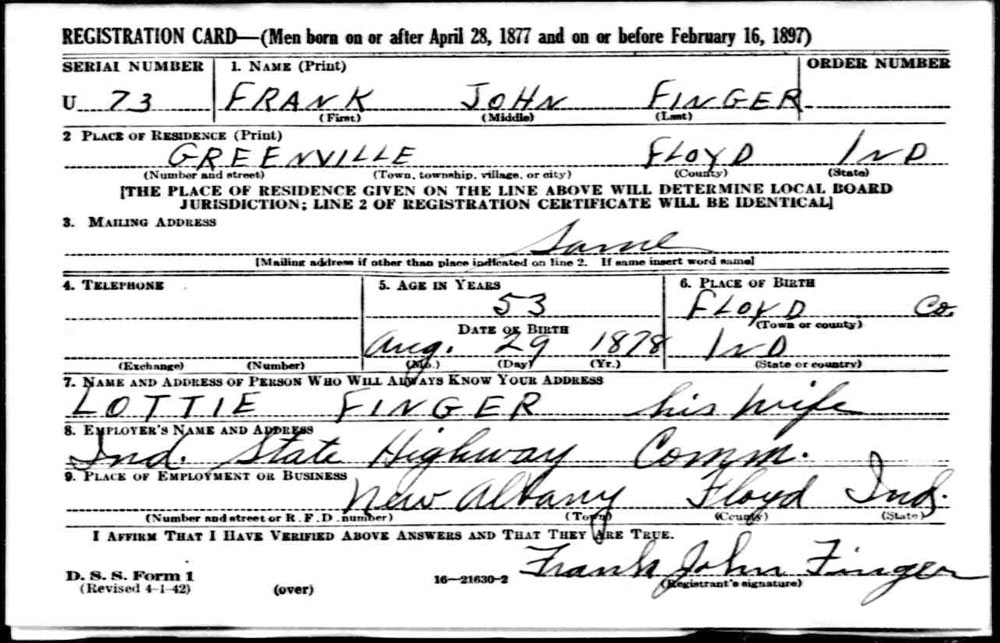 REGISTRATION CARD—(Men born on or after April 28, 1877 and on or before February 16, 1897)
SERIAL NUMBER 1. NAME (Print) ORDER NUMBER
U 73 FRANK JOHN FINGER
(First) (Middle) (Last)
2 PLACE OF RESIDENCE (Print)
GREENVILLE FLOYD IND
(Number and street) (Town, township, village, or city) (County) (State)
[THE PLACE OF RESIDENCE GIVEN ON THE LINE ABOVE WILL DETERMINE LOCAL BOARD
JURISDICTION; LINE 2 OF REGISTRATION CERTIFICATE WILL BE IDENTICAL]
3. MAILING ADDRESS
Same
[Mailing address if other than place indicated on line 2. If same insert word same]
4. TELEPHONE 5. AGE IN YEARS 6. PLACE OF BIRTH
53 FLOYD Co.
DATE OF BIRTH (Town or county)
Aug. 29 1878 IND
(Exchange) (Number) (Mo.) (Day) (Yr.) (State or country)
7. NAME AND ADDRESS OF PERSON WHO WILL ALWAYS KNOW YOUR ADDRESS
LOTTIE FINGER his wife
8. EMPLOYER'S NAME AND ADDRESS
Ind. State Highway Comm.
9. PLACE OF EMPLOYMENT OR BUSINESS
New Albany Floyd Ind.
(Number and street or R. F. D. number) (Town) (County) (State)
I AFFIRM THAT I HAVE VERIFIED ABOVE ANSWERS AND THAT THEY ARE TRUE.
Frank John Finger
D. S. S. Form 1 16—21630-2 (Registrant's signature)
(Revised 4-1-42) (over)